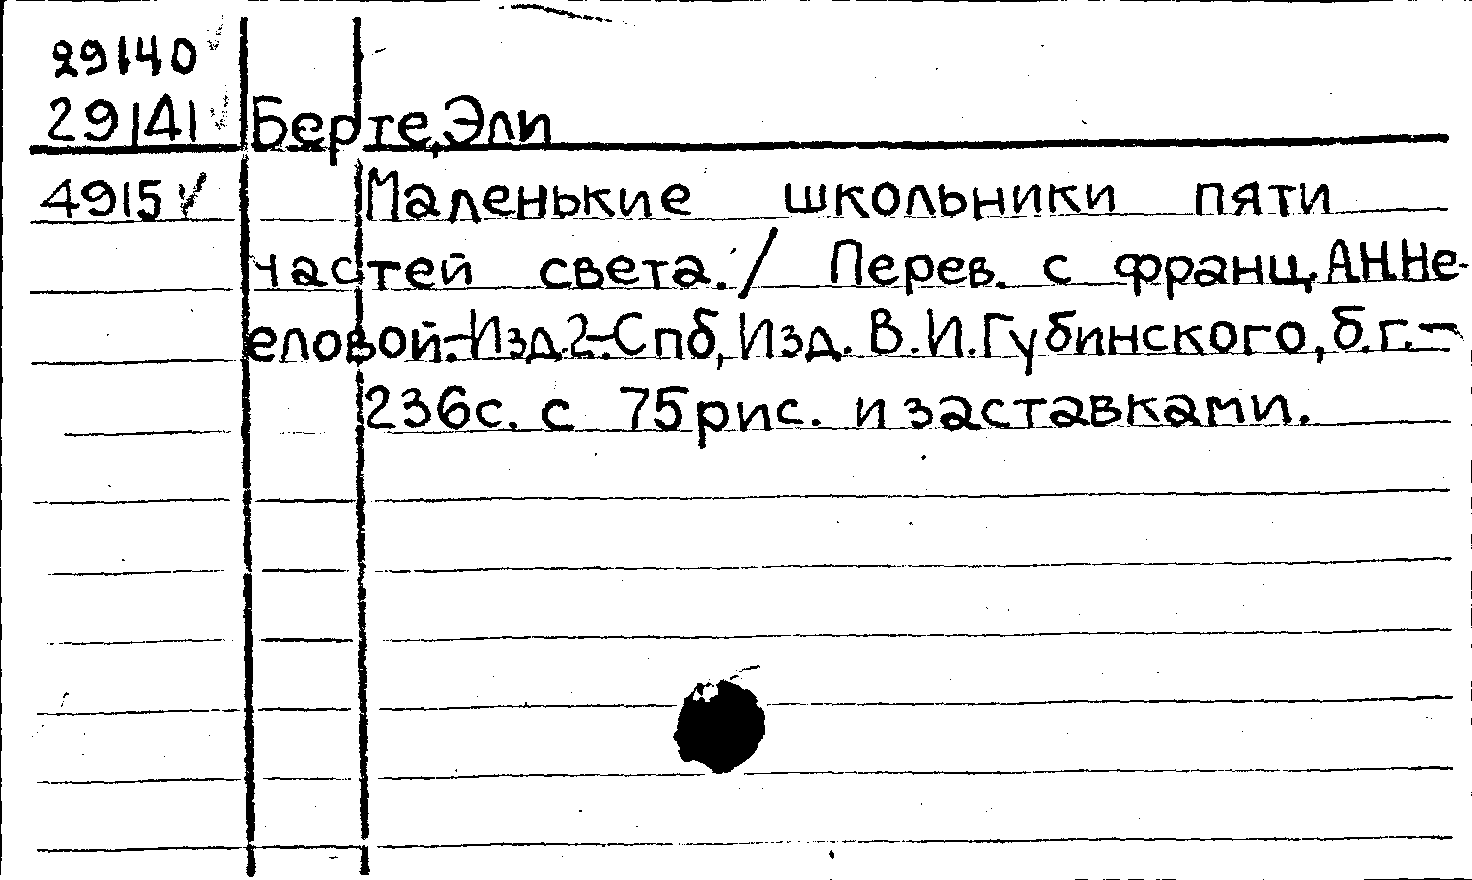 29140
29141 Берте, Эли
4915 Маленькие школьники пяти
частей света. / Перев. с франц. А.Н.Не-
еловой.-Изд.2.-Спб, Изд. В.И.Губинского, б.г.-
236с. с 75 рис. и заставками.